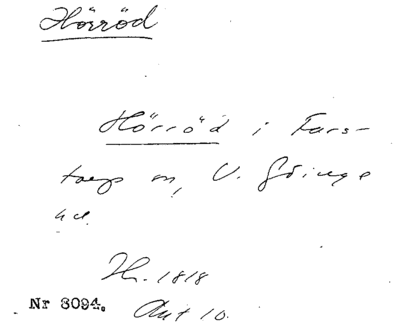 Hörröd
Hörröd i Fars-
torp sn, V. Göinge
hd.
Hn. 1818
Nr 3094. Akt 10.